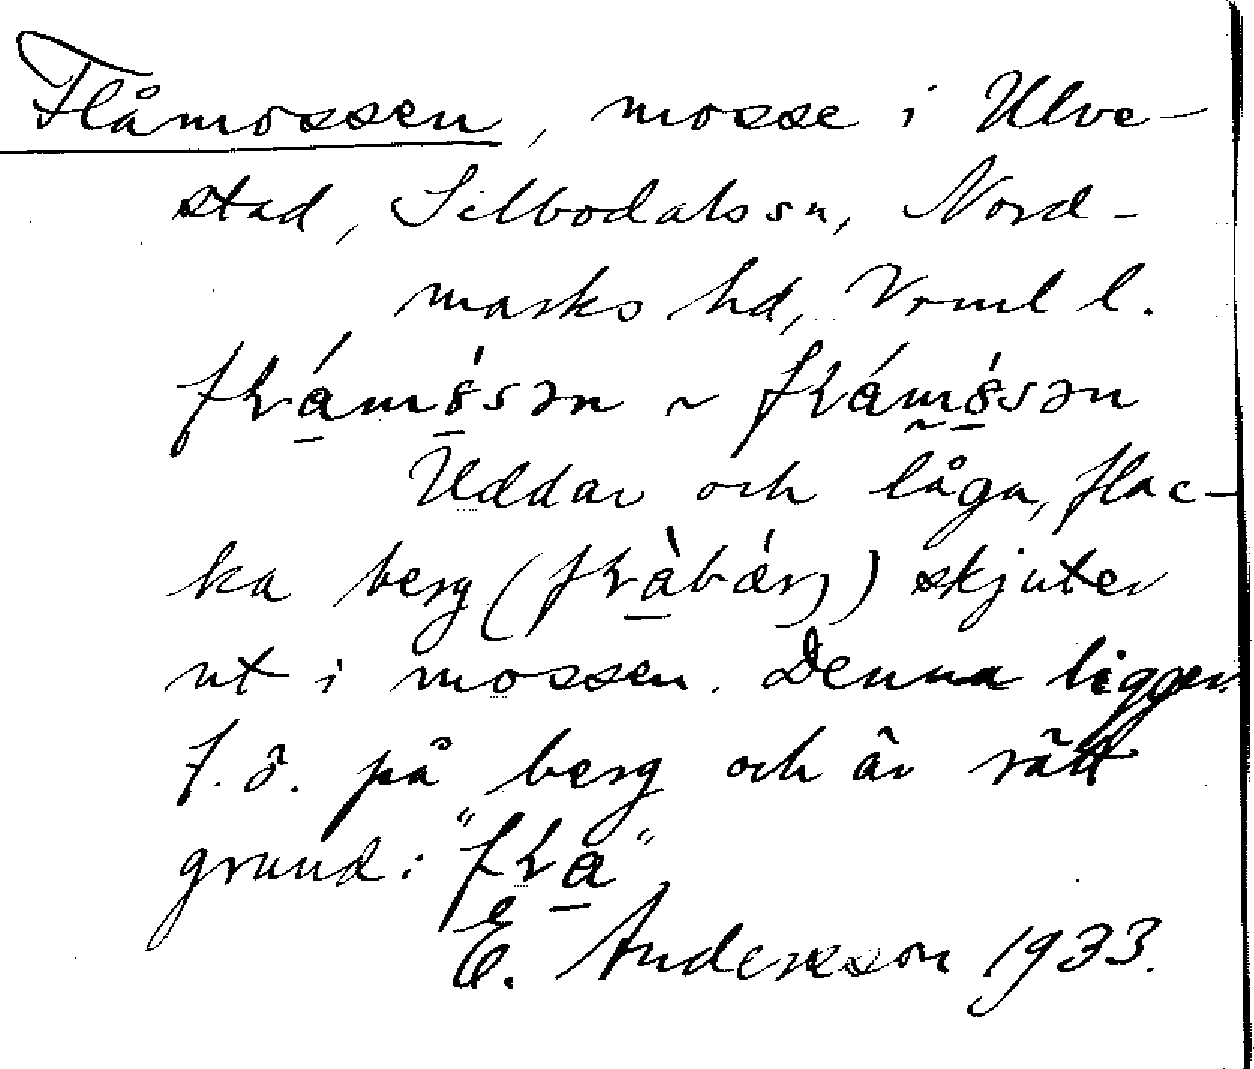 Flåmossen, mosse i Ulve-
stad, Silbodalssn, Nord-
marks hd, Vrml l.
Uddar och låga, flac-
ka berg ( ) skjuter
ut i mossen. Denna ligger
f. ö. på berg och är rätt
grund:
E. Andersson 1933.